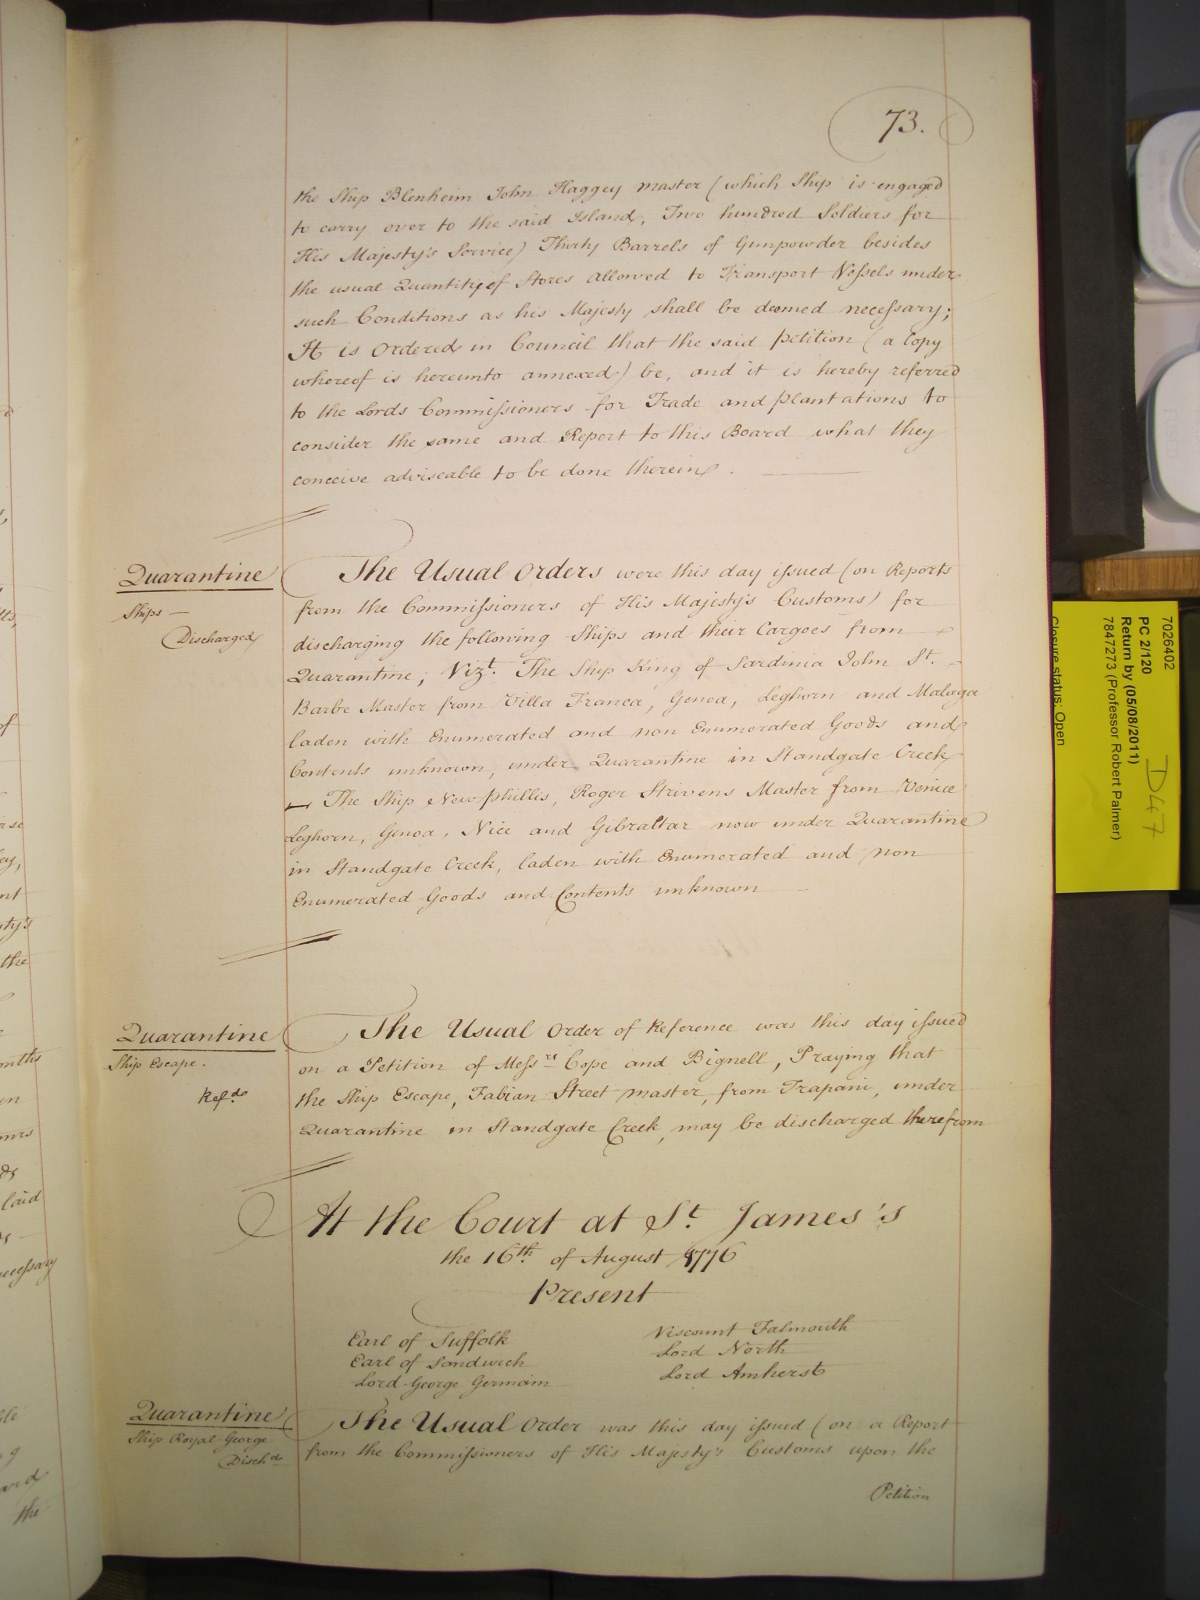 73.
the Ship Blenheim John Haggey master (which Ship is engaged
to carry over to the said Island, Two hundred Soldiers for
His Majesty's Service) Thirty Barrels of Gunpowder besides
the usual Quantity of Stores allowed to Transport Vessels under
such Conditions as his Majesty shall be deemed necessary;
It is Ordered in Council that the said Petition (a Copy
whereof is hereunto annexed) be, and it is hereby referred
to the Lords Commissioners for Trade and Plantations to
consider the same and Report to this Board what they
conceive adviseable to be done therein.
Quarantine
Ships —
Discharged
The Usual Orders were this day issued (on Reports
from the Commissioners of His Majesty's Customs) for
discharging the following Ships and their Cargoes from
Quarantine; Vizt. The Ship King of Sardinia John St.
Barbe Master from Villa Franca, Genoa, Leghorn and Malaga
laden with Enumerated and non Enumerated Goods and
Contents unknown, under Quarantine in Standgate Creek
— The Ship New Phillis, Roger Strivens Master from Venice
Leghorn, Genoa, Nice and Gibraltar now under Quarantine
in Standgate Creek, laden with Enumerated and non
Enumerated Goods and Contents unknown
Quarantine
Ship Escape.
Refd.
The Usual Order of Reference was this day issued
on a Petition of Messrs Cope and Bignell, Praying that
the Ship Escape, Fabian Street master, from Trapani, under
Quarantine in Standgate Creek, may be discharged therefrom
At the Court at St. James's
the 16th of August 1776
Present
Earl of Suffolk
Earl of Sandwich
Lord George Germain
Viscount Falmouth
Lord North
Lord Amherst
Quarantine
Ship Royal George
Dischd.
The Usual Order was this day issued (on a Report
from the Commissioners of His Majesty's Customs upon the
Petition
7026402
PC 2/120
Return by (05/08/2011)
7847273 (Professor Robert Palmer)
Closure status: Open
D47